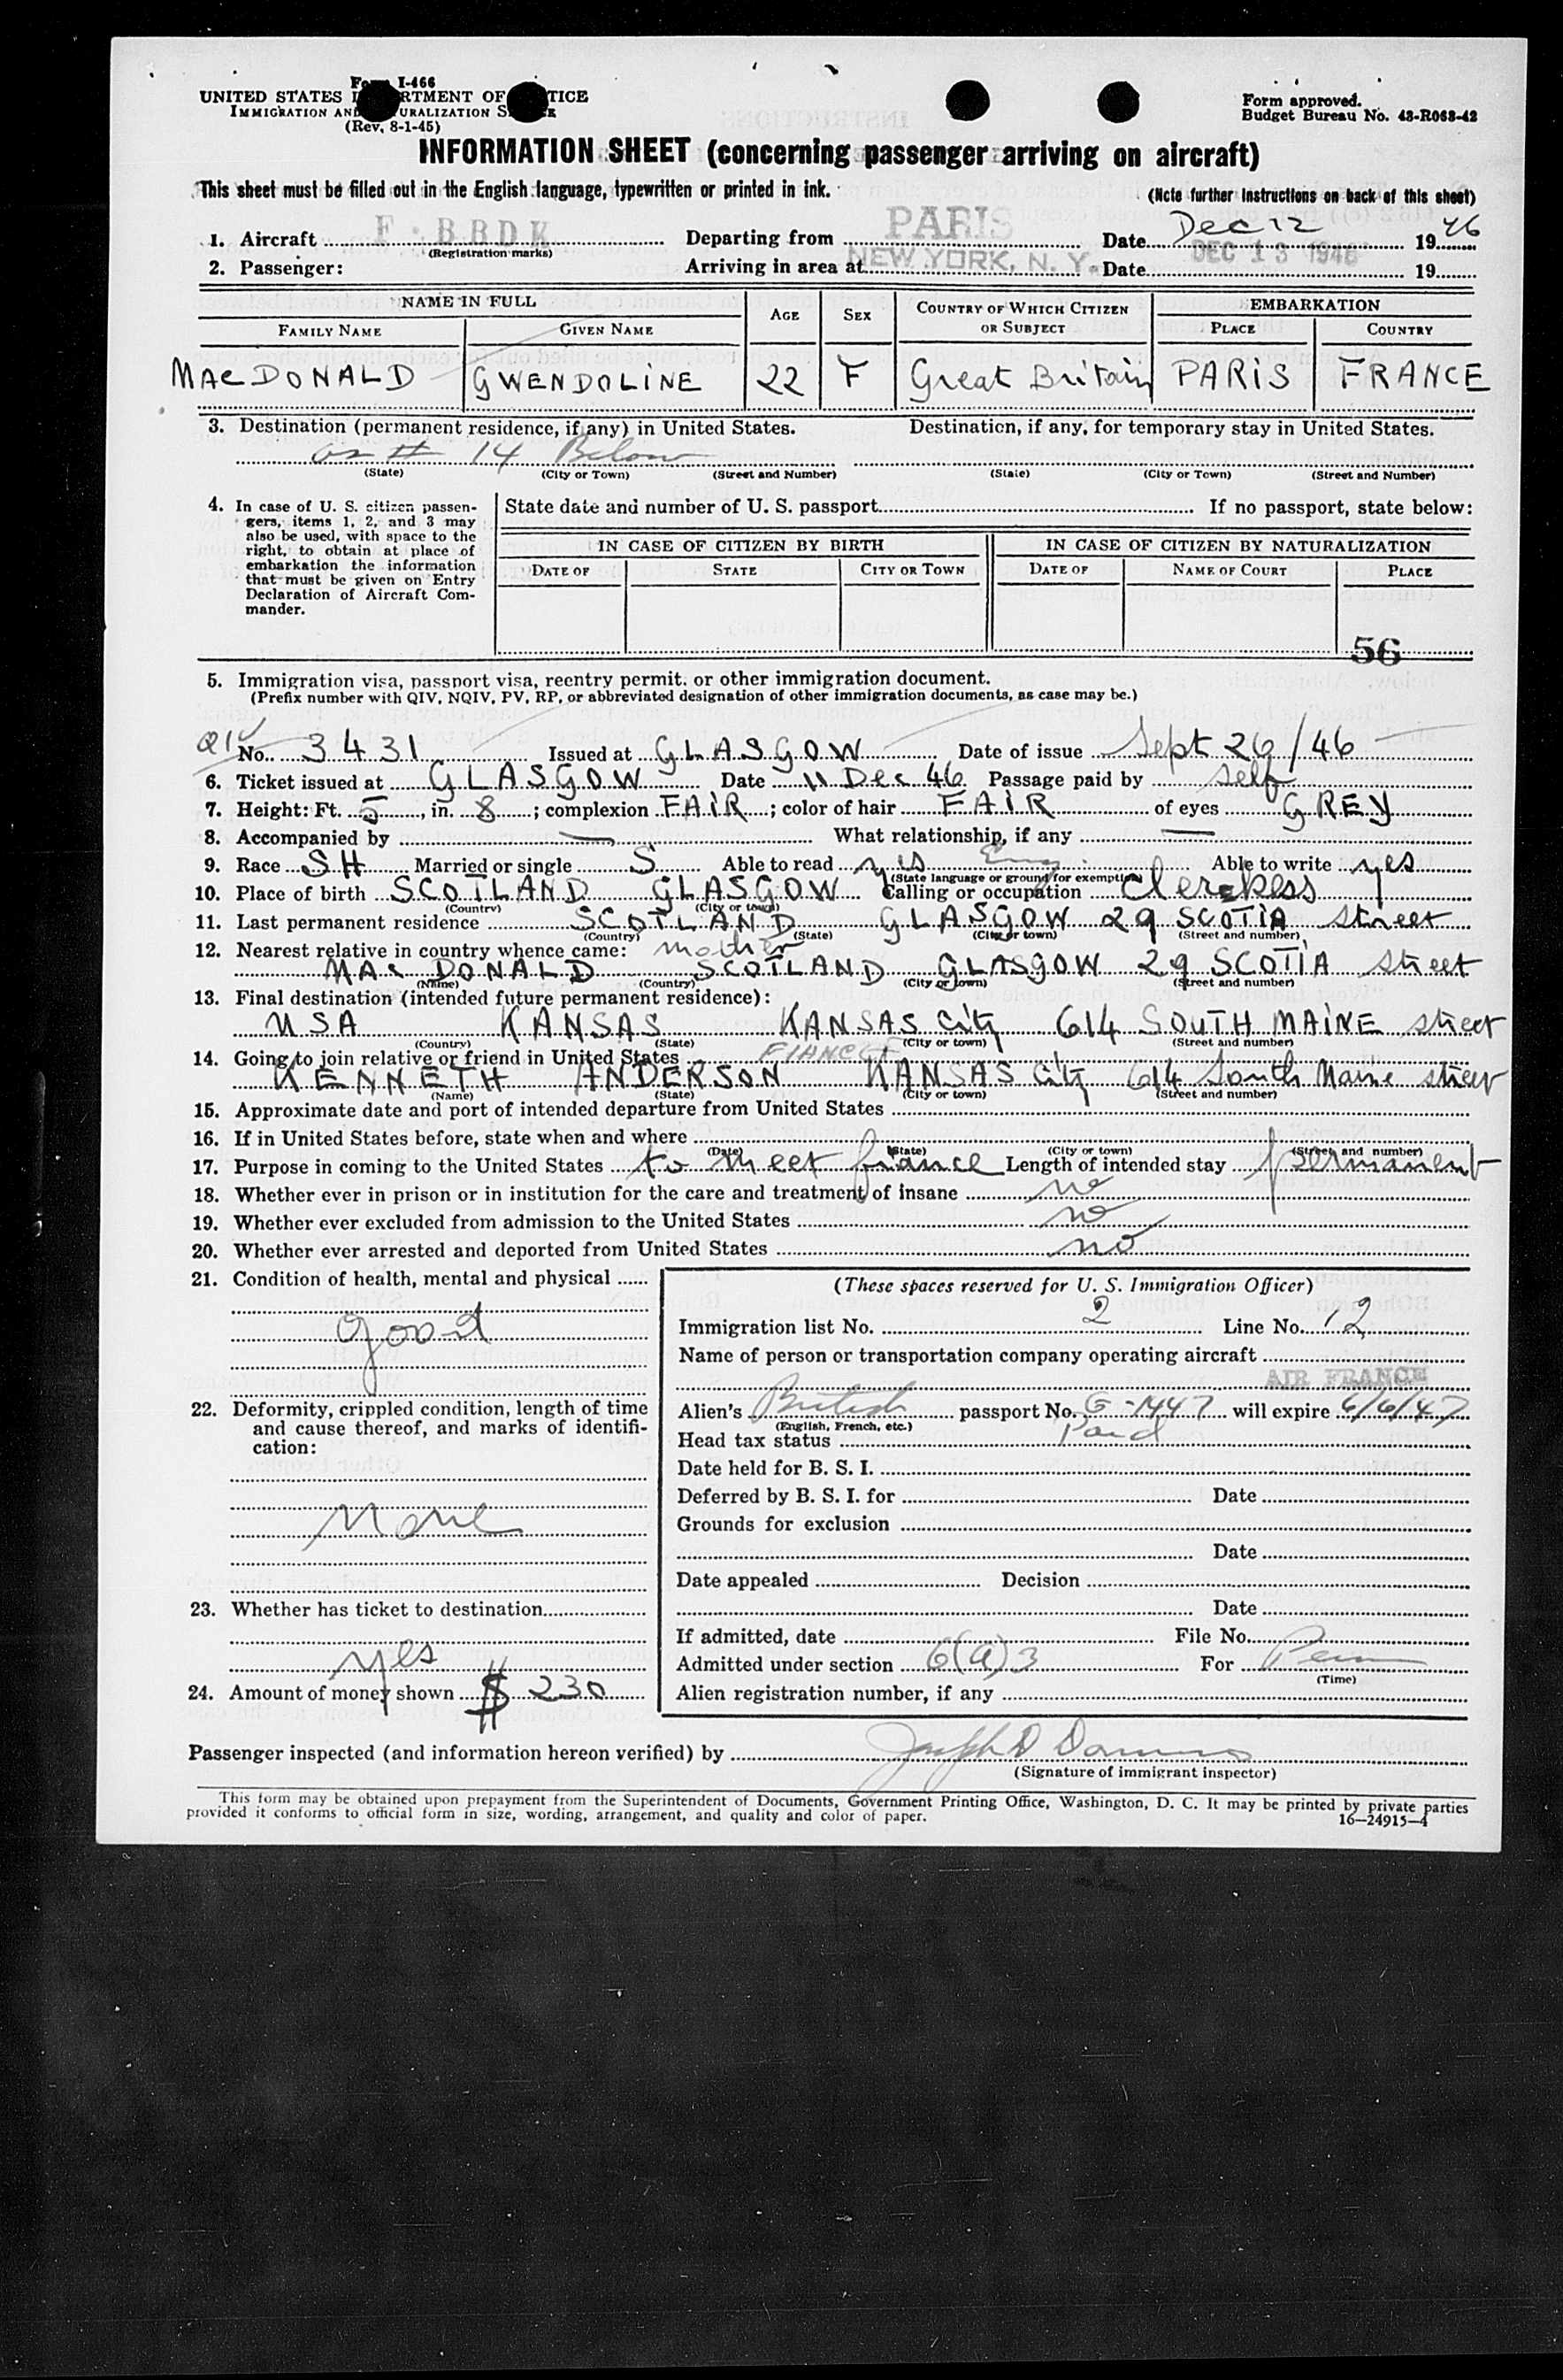 Form I-466
UNITED STATES DEPARTMENT OF JUSTICE
IMMIGRATION AND NATURALIZATION SERVICE
(Rev. 8-1-45)
Form approved.
Budget Bureau No. 43-R068-42
INFORMATION SHEET (concerning passenger arriving on aircraft)
This sheet must be filled out in the English language, typewritten or printed in ink.
(Note further instructions on back of this sheet)
1. Aircraft F·BBDK Departing from PARIS Date Dec 12 1946
(Registration marks)
2. Passenger: Arriving in area at NEW YORK, N. Y. Date DEC 13 1946 19
NAME IN FULL AGE SEX COUNTRY OF WHICH CITIZEN OR SUBJECT EMBARKATION
FAMILY NAME GIVEN NAME PLACE COUNTRY
MACDONALD GWENDOLINE 22 F Great Britain PARIS FRANCE
3. Destination (permanent residence, if any) in United States. Destination, if any, for temporary stay in United States.
as # 14 Below
(State) (City or Town) (Street and Number) (State) (City or Town) (Street and Number)
4. In case of U. S. citizen passen-
gers, items 1, 2, and 3 may
also be used, with space to the
right, to obtain at place of
embarkation the information
that must be given on Entry
Declaration of Aircraft Com-
mander.
State date and number of U. S. passport If no passport, state below:
IN CASE OF CITIZEN BY BIRTH IN CASE OF CITIZEN BY NATURALIZATION
DATE OF STATE CITY OR TOWN DATE OF NAME OF COURT PLACE
56
5. Immigration visa, passport visa, reentry permit. or other immigration document.
(Prefix number with QIV, NQIV, PV, RP, or abbreviated designation of other immigration documents, as case may be.)
QIV No. 3431 Issued at GLASGOW Date of issue Sept 26/46
6. Ticket issued at GLASGOW Date 11 Dec 46 Passage paid by self
7. Height: Ft. 5, in. 8; complexion FAIR; color of hair FAIR of eyes GREY
8. Accompanied by — What relationship, if any —
9. Race SH Married or single S Able to read yes Eng. Able to write yes
(State language or ground for exemption)
10. Place of birth SCOTLAND GLASGOW Calling or occupation Clerkess
(Country) (City or town)
11. Last permanent residence SCOTLAND GLASGOW 29 SCOTIA street
(Country) (State) (City or town) (Street and number)
12. Nearest relative in country whence came: mother
MAC DONALD SCOTLAND GLASGOW 29 SCOTIA street
(Name) (Country) (City or town) (Street and number)
13. Final destination (intended future permanent residence):
USA KANSAS KANSAS City 614 SOUTH MAINE street
(Country) (State) (City or town) (Street and number)
14. Going to join relative or friend in United States FIANCE
KENNETH ANDERSON KANSAS City 614 South Maine street
(Name) (State) (City or town) (Street and number)
15. Approximate date and port of intended departure from United States
16. If in United States before, state when and where
(Date) (State) (City or town) (Street and number)
17. Purpose in coming to the United States to meet fiance Length of intended stay permanent
18. Whether ever in prison or in institution for the care and treatment of insane no
19. Whether ever excluded from admission to the United States no
20. Whether ever arrested and deported from United States no
21. Condition of health, mental and physical
good
22. Deformity, crippled condition, length of time
and cause thereof, and marks of identifi-
cation:
None
23. Whether has ticket to destination
yes
24. Amount of money shown $ 230
(These spaces reserved for U. S. Immigration Officer)
Immigration list No. 2 Line No. 12
Name of person or transportation company operating aircraft
AIR FRANCE
Alien's British passport No. G-1447 will expire 6/6/47
(English, French, etc.)
Head tax status Paid
Date held for B. S. I.
Deferred by B. S. I. for Date
Grounds for exclusion
Date
Date appealed Decision
Date
If admitted, date File No.
Admitted under section 6(a)3 For Perm
(Time)
Alien registration number, if any
Passenger inspected (and information hereon verified) by Joseph D
(Signature of immigrant inspector)
This form may be obtained upon prepayment from the Superintendent of Documents, Government Printing Office, Washington, D. C. It may be printed by private parties
provided it conforms to official form in size, wording, arrangement, and quality and color of paper.
16—24915-4